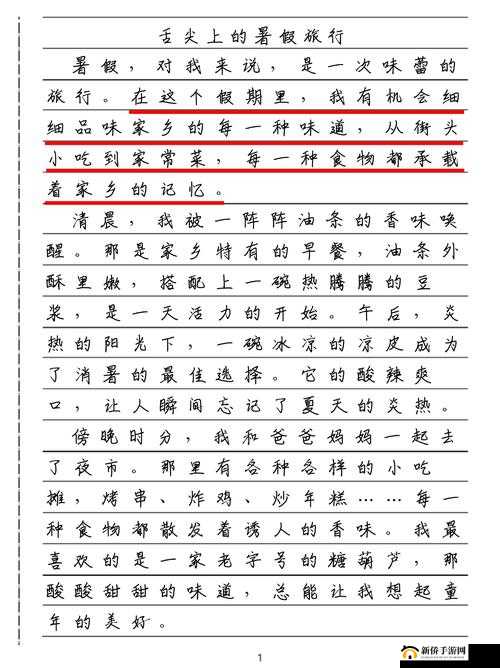 舌尖上的暑假旅行
暑假，对我来说，是一次味蕾的
旅行。在这个假期里，我有机会细
细品味家乡的每一种味道，从街头
小吃到家常菜，每一种食物都承载
着家乡的记忆。
清晨，我被一阵阵油条的香味唤
醒。那是家乡特有的早餐，油条外
酥里嫩，搭配上一碗热腾腾的豆
浆，是一天活力的开始。午后，炎
热的阳光下，一碗冰凉的凉皮成为
了消暑的最佳选择。它的酸辣爽
口，让人瞬间忘记了夏天的炎热。
傍晚时分，我和爸爸妈妈一起去
了夜市。那里有各种各样的小吃
摊，烤串、炸鸡、炒年糕……每一
种食物都散发着诱人的香味。我最
喜欢的是一家老字号的糖葫芦，那
酸酸甜甜的味道，总能让我想起童
年的美好。
1
新侨手游网